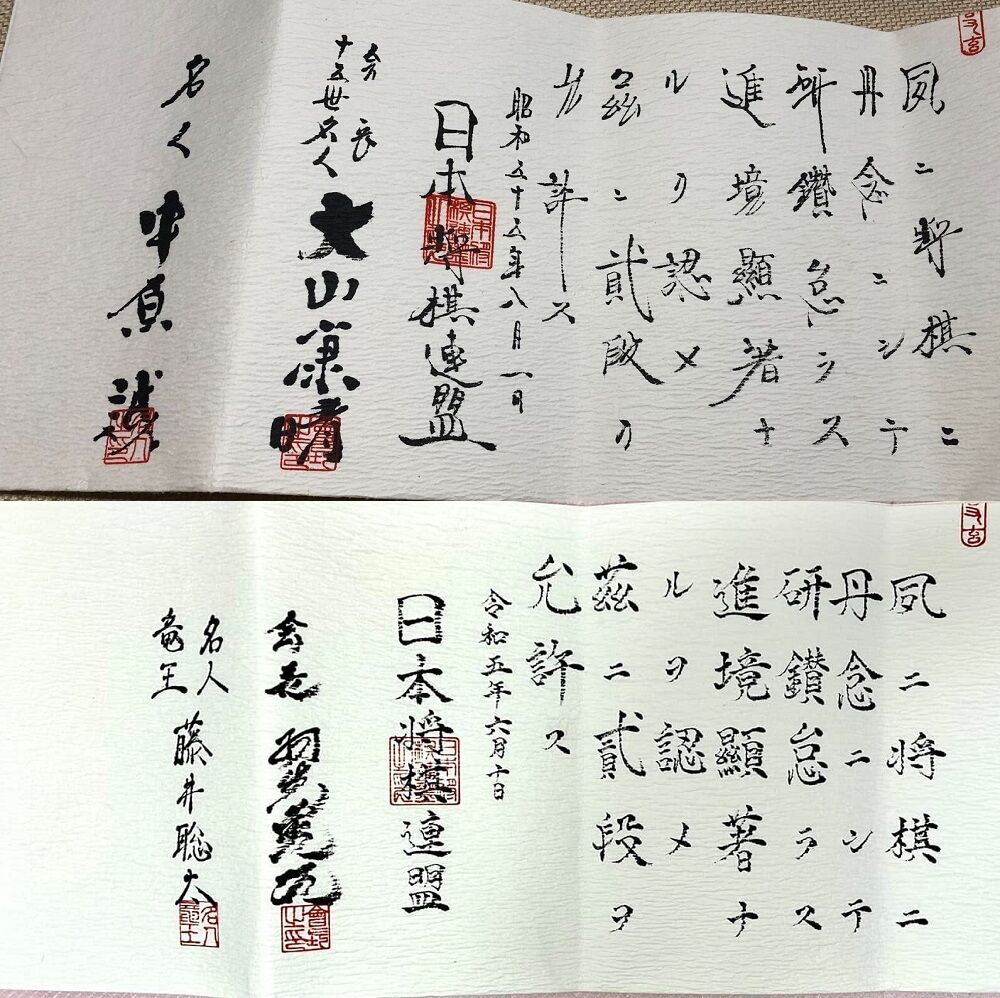 夙ニ将棋ニ
丹念ニシテ
研鑽怠ラス
進境顯著ナ
ルヲ認メ
茲ニ貳段ヲ
允許ス
昭和五十五年八月一日
日本将棋連盟
会長
十五世名人
大山康晴
名人 中原誠
夙ニ将棋ニ
丹念ニシテ
研鑽怠ラス
進境顯著ナ
ルヲ認メ
茲ニ貳段ヲ
允許ス
令和五年六月十日
日本将棋連盟
会長 羽生善治
名人
竜王
藤井聡太